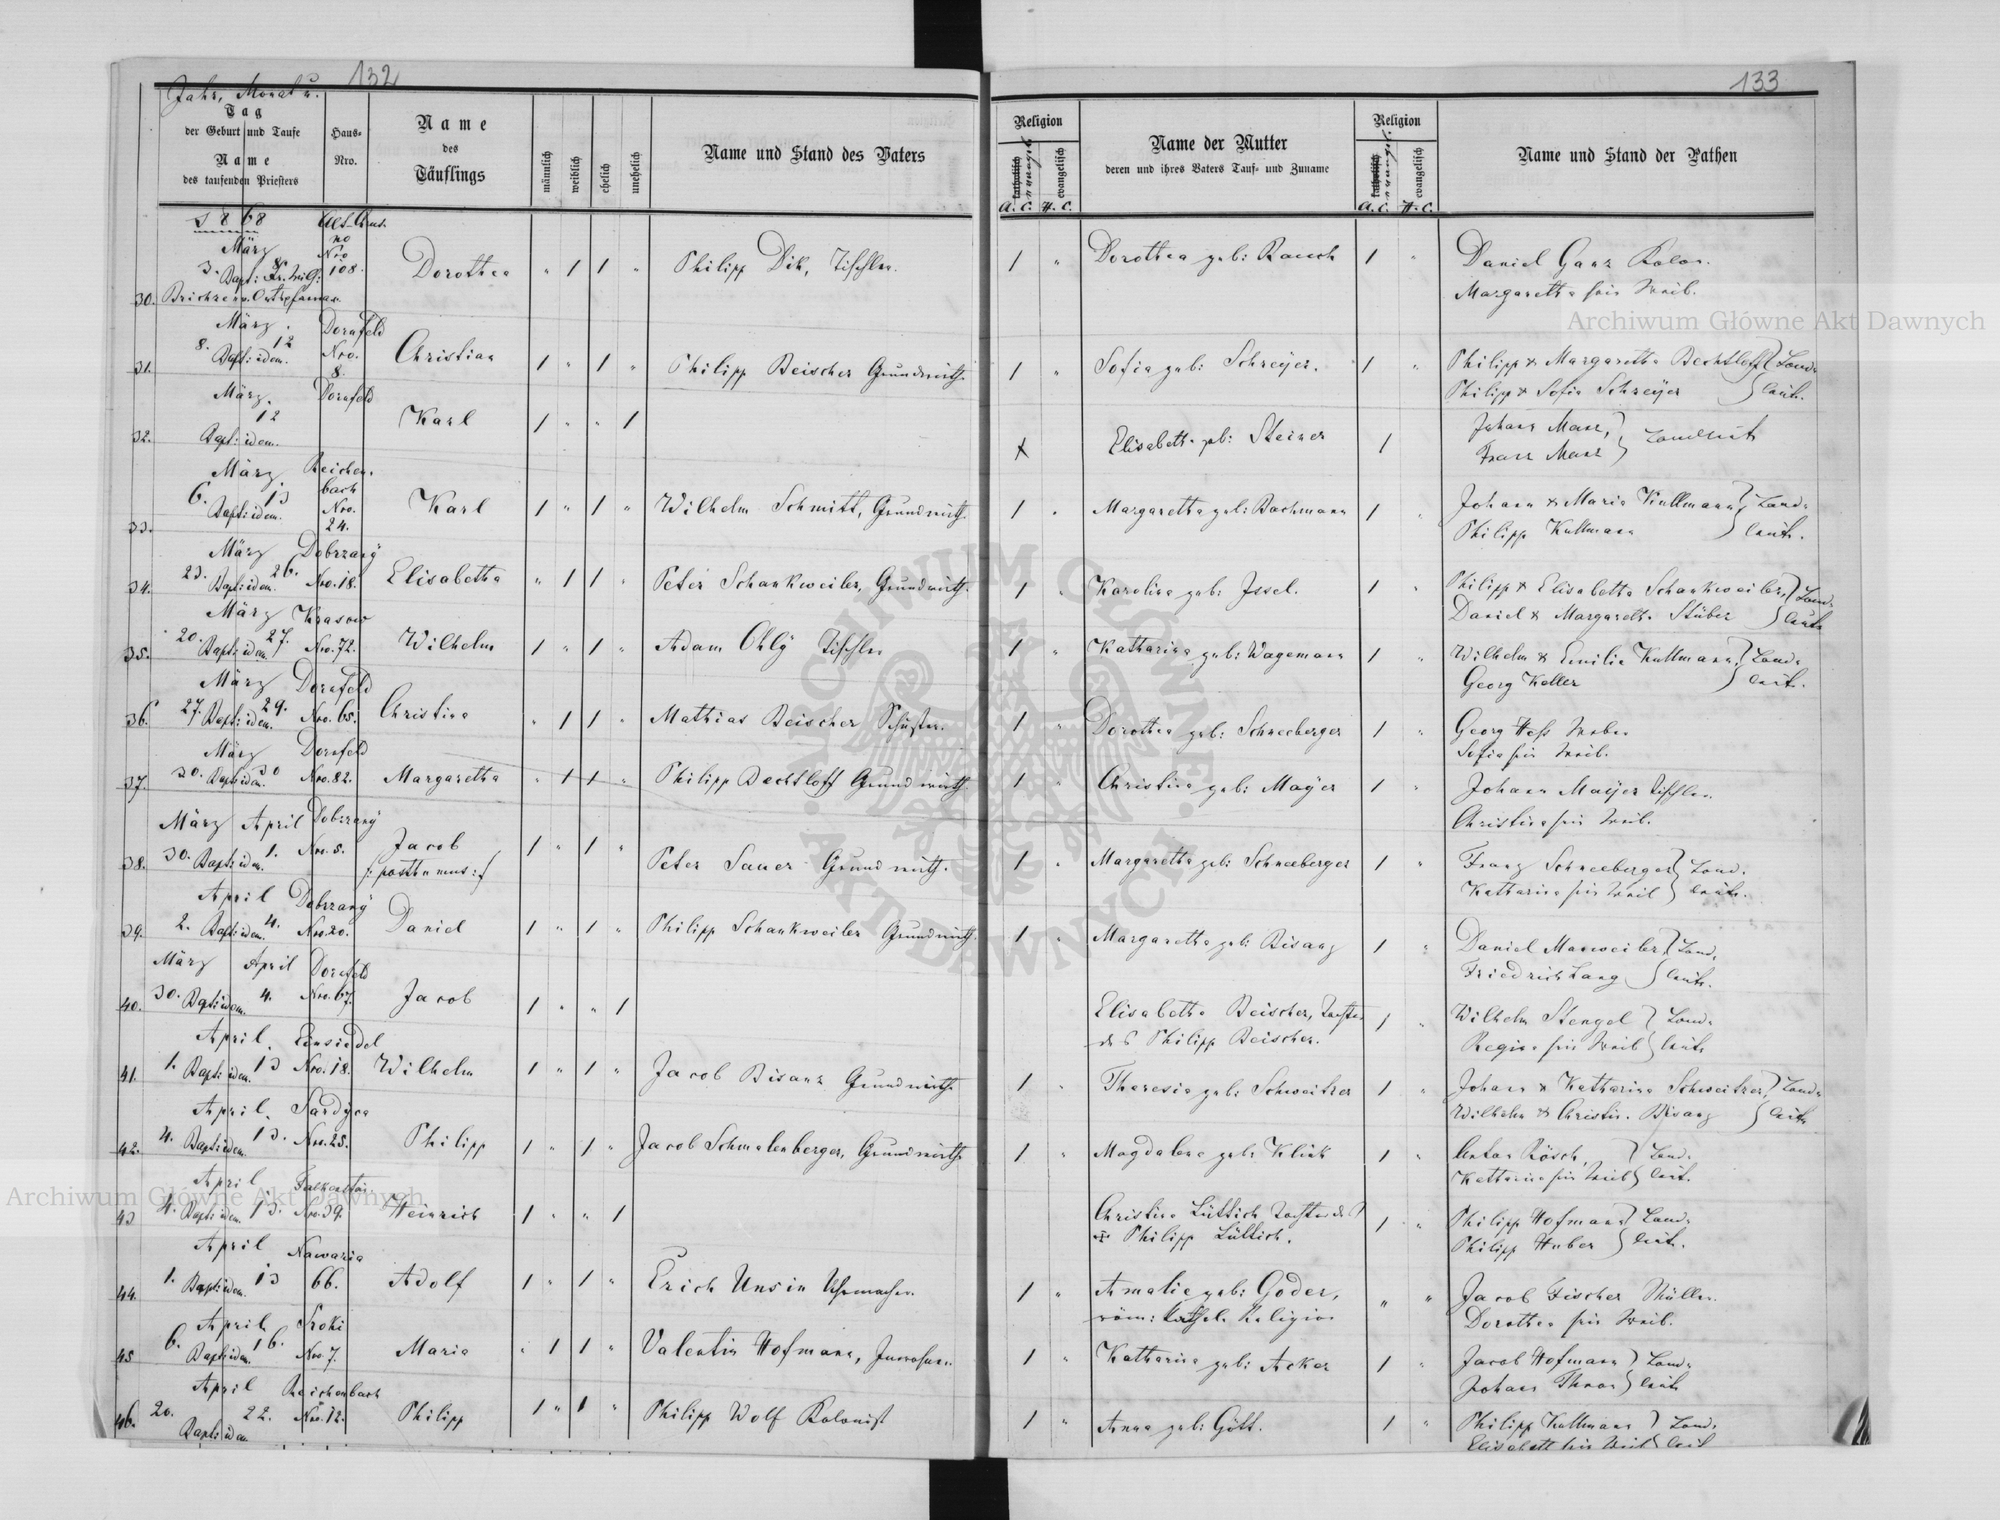 132
133
Jahr, Monat u.
Tag
der Geburt und Taufe
Name
des taufenden Priesters
Haus-
Nro.
Name
des
Täuflings
männlich
weiblich
ehelich
unehelich
Name und Stand des Vaters
Religion
katholisch
evangelisch
A. C. H. C.
Name der Mutter
deren und ihres Vaters Tauf- und Zuname
Religion
katholisch
evangelisch
A. C. H. C.
Name und Stand der Pathen
1868
März Nro 108.
30. 3. Bapt: Dorothea " 1 1 " Philipp Dik, Tischler. 1 " Dorothea geb: Rauch 1 " Daniel Ganz Kolon.
Margaretha sein Weib.
März. Dornfeld
31. 8. 12 Bapt: idem. Nro. 8. Christian 1 " 1 " Philipp Beischer Grundwirth 1 " Sofia geb: Schreyer. 1 " Philipp & Margaretha Bechtloff } Land-
Philipp & Sofia Schreyer } leute.
März. Dornfeld
32. 12 Bapt: idem. Karl 1 " " 1 Elisabeth geb: Steiner 1 Johann Manz,
Franz Manz } Landleute
März. Reichen-
bach
33. 6. 13 Bapt: idem. Nro. 24. Karl 1 " 1 " Wilhelm Schmitt, Grundwirth. 1 " Margaretha geb: Bachmann 1 " Johann & Maria Kullmann } Land-
Philipp Kullmann } leute.
März Dobrzany
34. 23. 26. Bapt: idem. Nro. 18. Elisabetha " 1 1 " Peter Schankweiler, Grundwirth. 1 " Karolina geb: Issel. 1 " Philipp & Elisabetha Schankweiler, } Land-
Daniel & Margareth. Stüber } leute
März Krasow
35. 20. 27. Bapt: idem. Nro. 72. Wilhelm 1 " 1 " Adam Ohly Tischler 1 " Katharina geb: Wagemann 1 " Wilhelm & Emilie Kullmann, } Land-
Georg Keller } leute.
März Dornfeld
36. 27. 29. Bapt: idem. Nro. 65. Christina " 1 1 " Mathias Beischer Schuster. 1 " Dorothea geb: Schneeberger 1 " Georg Hess Weber
Sofia sein Weib.
März Dornfeld
37. 30. 30 Bapt: idem. Nro. 82. Margaretha " 1 1 " Philipp Bechtloff Grundwirth. 1 " Christina geb: Mayer 1 " Johann Mayer Tischler.
Christina sein Weib.
März April Dobrzany
38. 30. 1. Bapt: idem. Nro. 5. Jacob 1 " 1 " Peter Sauer Grundwirth. 1 " Margaretha geb: Schneeberger 1 " Franz Schneeberger } Land-
/: posthumus :/ Katharina sein Weib } leute.
April Dobrzany
39. 2. 4. Bapt: idem. Nro. 20. Daniel 1 " 1 " Philipp Schankweiler Grundwirth. 1 " Margaretha geb: Bisanz 1 " Daniel Manweiler, } Land-
Friedrich Lang } leute.
März April Dornfeld
40. 30. 4. Bapt: idem. Nro. 67. Jacob 1 " " 1 Elisabetha Beischer, Tochter 1 " Wilhelm Stengel } Land-
des Philipp Beischer. Regina sein Weib } leute
April. Einsiedel
41. 1. 13 Bapt: idem. Nro. 18. Wilhelm 1 " 1 " Jacob Bisanz Grundwirth 1 " Theresia geb: Schweitzer 1 " Johann & Katharina Schweitzer, } Land-
Wilhelm & Christin. Bisanz } leute
April.
42. 4. 13. Bapt: idem. Nro. 25. Philipp 1 " 1 " Jacob Schmalenberger, Grundwirth 1 " Magdalena geb: Klink 1 " Rösch, } Land-
Katharina sein Weib } leute.
April Falkenstein
43 4. 13. Bapt: idem. Nro. 39. Heinrich 1 " " 1 Christina Lüttich Tochter des 1 " Philipp Hofmann } Land-
Philipp Lüttich. Philipp Huber } leute.
April Nawaria
44. 1. 13 Bapt: idem. 66. Adolf 1 " 1 " Erich Unsin Uhrmacher. 1 " Amalie geb: Goder, " " Jacob Fischer Müller.
röm: kathol. Religion Dorothea sein Weib.
April Sroki
45 6. 16. Bapt: idem. Nro 7. Maria " 1 1 " Valentin Hofmann, 1 " Katharina geb: Acker 1 " Jacob Hofmann } Land-
Johann } leute
April Reichenbach
46. 20. 22. Bapt: idem. Nro. 12. Philipp 1 " 1 " Philipp Wolf Kolonist 1 " Anna geb: Gött. 1 " Philipp Kullmann } Land-
Elisabeth sein Weib } leute
Archiwum Główne Akt Dawnych
Archiwum Główne Akt Dawnych
ARCHIWUM GŁÓWNE · AKT DAWNYCH ·